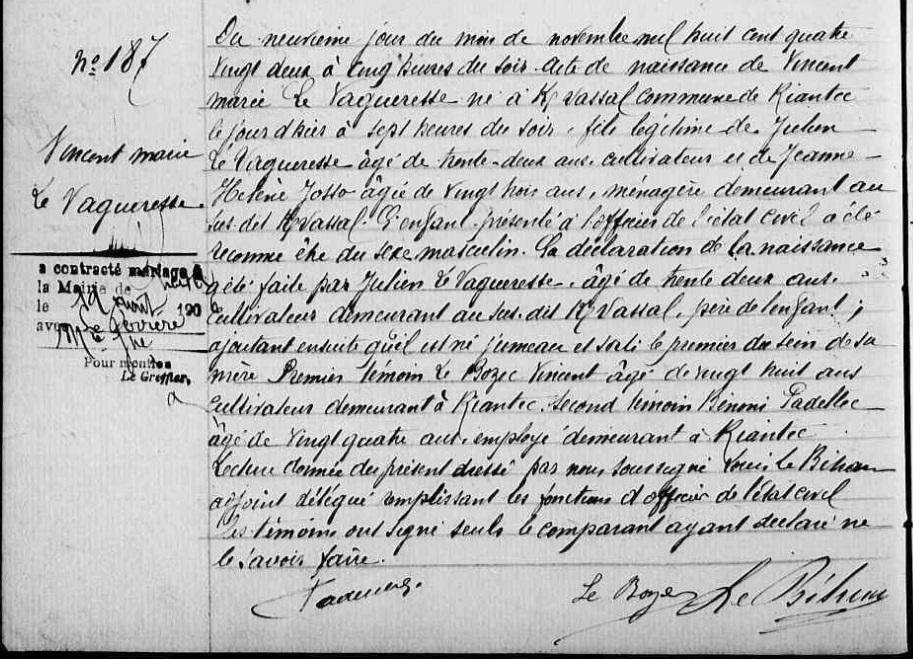 nº 187
Vincent marie
Le Vaqueresse
a contracté mariage à
la Mairie de
le 19 aout 190
avec
Pour mention
Le Greffier,
Du neuvieme jour du mois de novembre mil huit cent quatre
vingt deux à cinq heures du soir. Acte de naissance de Vincent
marie Le Vaqueresse né à Kvassal commune de Riantec
le jour d'hier à sept heures du soir, fils légitime de Julien
Le Vaqueresse âgé de trente-deux ans. cultivateur et de Jeanne
Helene Josso âgée de vingt trois ans, ménagère demeurant au
sus-dit Kvassal. L'enfant présenté à l'officier de l'état civil a été
reconnu être du sexe masculin. La déclaration de la naissance
a été faite par Julien Le Vaqueresse, âgé de trente deux ans.
Cultivateur demeurant au sus-dit Kvassal, père de l'enfant;
ajoutant ensuite qu'il est né jumeau et sorti le premier du sein de sa
mère Premier témoin Le Bozec Vincent âgé de vingt huit ans
cultivateur demeurant à Riantec. Second témoin Bénoni Padellec
âgé de vingt quatre ans, employé demeurant à Riantec
Lecture donnée du présent dressé par nous soussigné Louis Le Bihan
adjoint délégué remplissant les fonctions d'officier de l'état civil
les témoins ont signé seuls le comparant ayant déclaré ne
le savoir faire.
Le Bozec Le Bihan